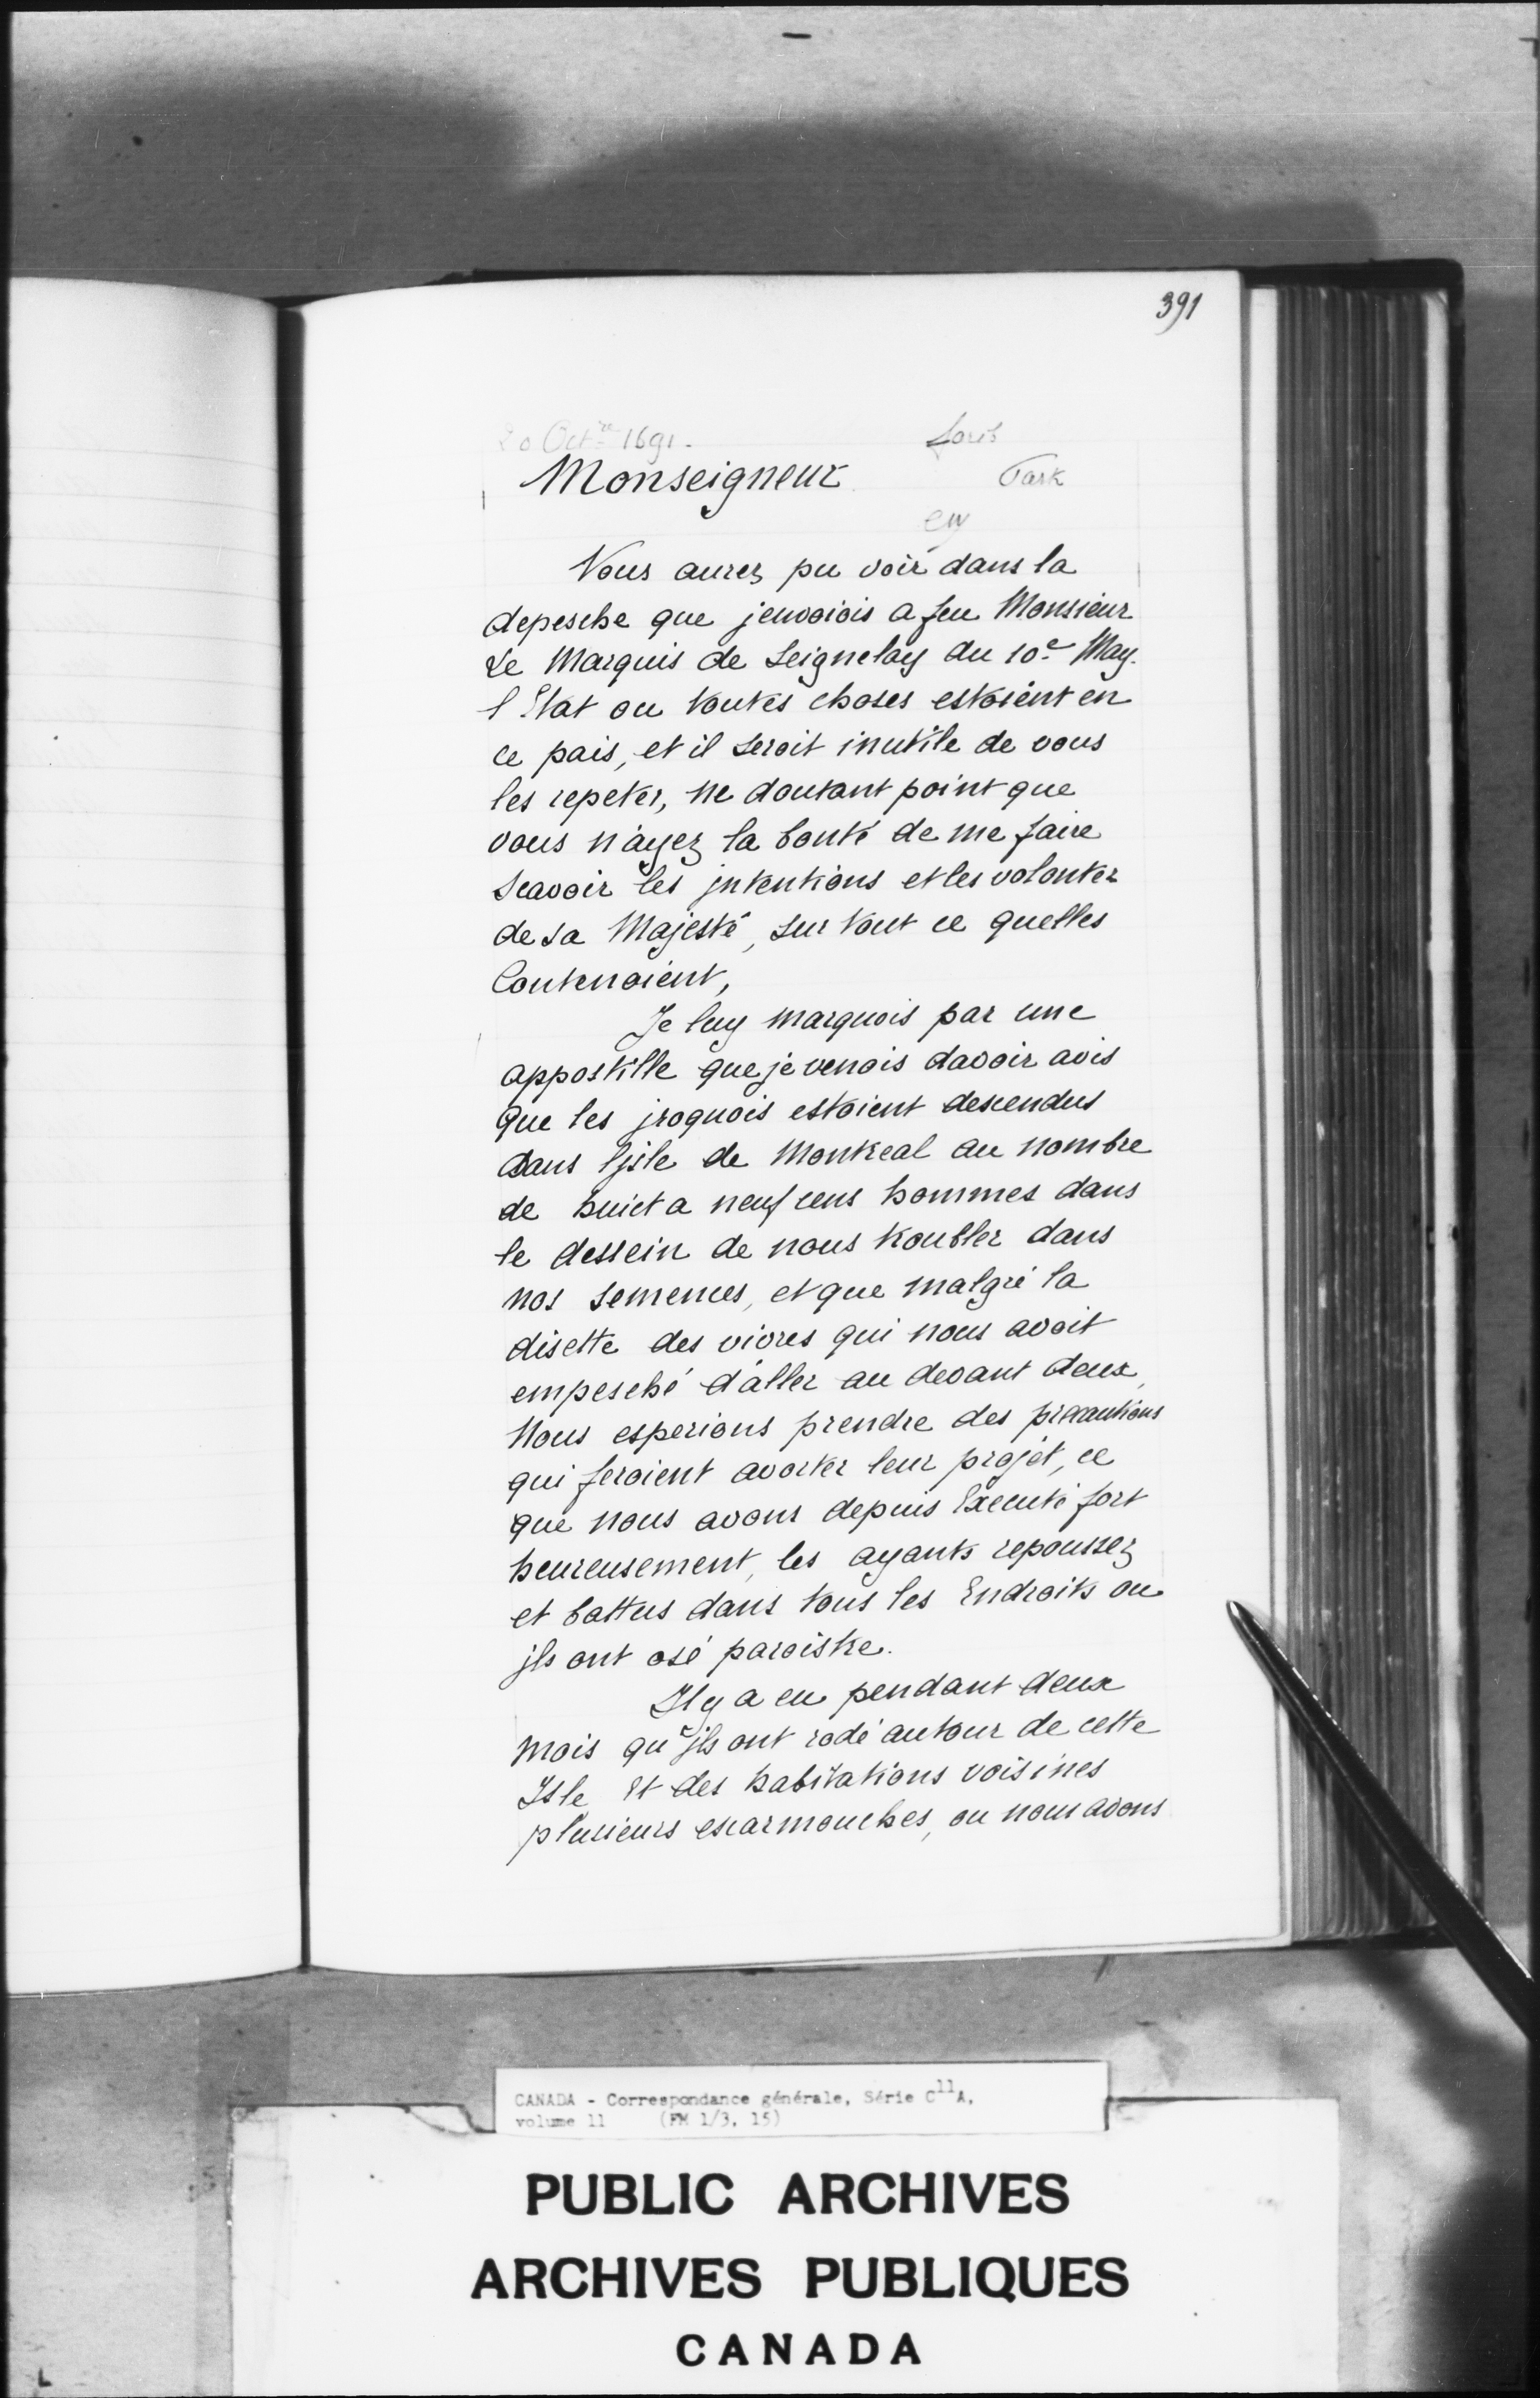 391
20 Octre 1691.
Monseigneur
Vous aurez pu voir dans la
depesche que jenvoiois a feu Monsieur
Le Marquis de Seignelay du 10e May.
l Etat ou toutes choses estoient en
ce pais, et il seroit inutile de vous
les repeter, ne doutant point que
vous n'ayez la bonté de me faire
scavoir les jntentions et les volontez
de sa Majesté, sur tout ce quelles
Contenoient,
Je luy marquois par une
appostille que je venois davoir avis
que les jroquois estoient descendus
dans ljsle de Montreal au nombre
de huict a neuf cens hommes dans
le dessein de nous troubler dans
nos semences, et que malgré la
disette des vivres qui nous avoit
empesché d'aller au devant deux,
Nous esperions prendre des precautions
qui feroient avorter leur projet, ce
que nous avons depuis Executé fort
heureusement, les ayants repoussez
et battus dans tous les Endroits ou
jls ont osé paroistre.
Il y a eu pendant deux
mois qu'jls ont rodé autour de cette
Isle Et des habitations voisines
plusieurs escarmouches, ou nous avons
CANADA - Correspondance générale, Série C11A,
volume 11 (FM 1/3, 15)
PUBLIC ARCHIVES
ARCHIVES PUBLIQUES
CANADA